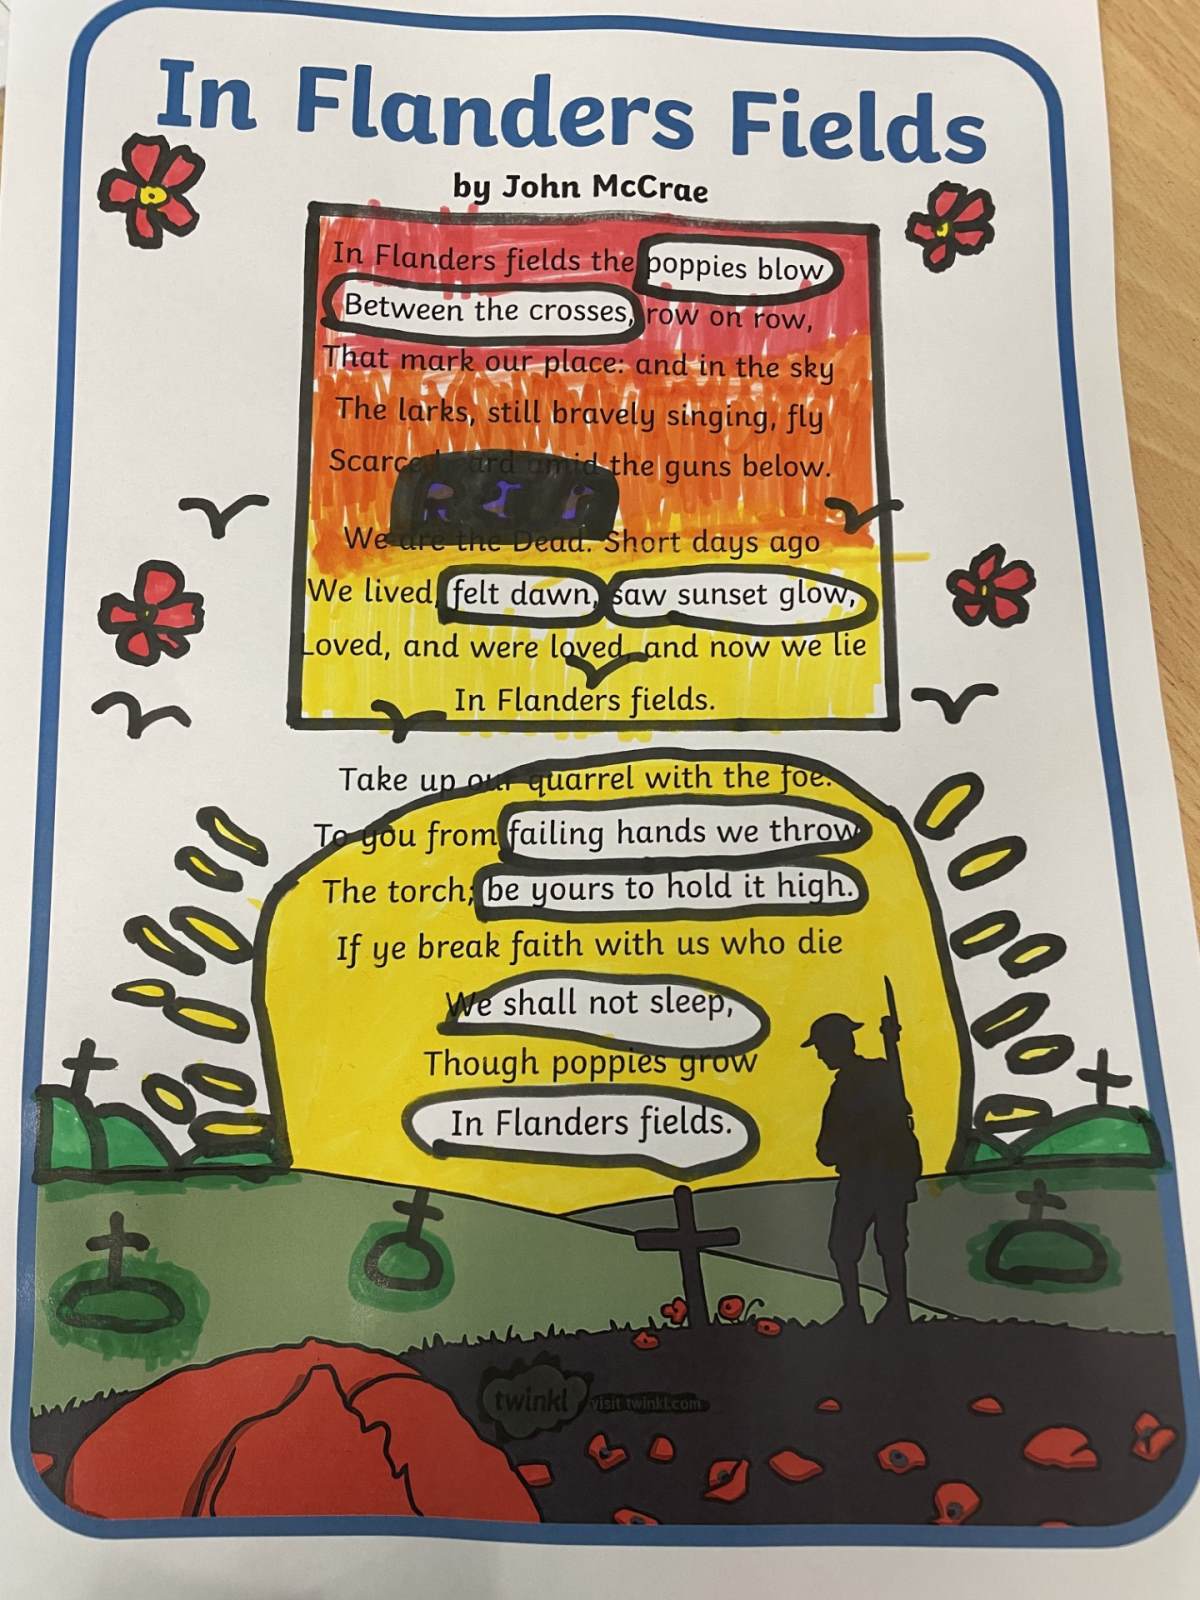 In Flanders Fields
by John McCrae
In Flanders fields the poppies blow
Between the crosses, row on row,
That mark our place: and in the sky
The larks, still bravely singing, fly
Scarce heard amid the guns below.
RIP
We are the Dead. Short days ago
We lived, felt dawn, saw sunset glow,
Loved, and were loved, and now we lie
In Flanders fields.
Take up our quarrel with the foe:
To you from failing hands we throw
The torch; be yours to hold it high.
If ye break faith with us who die
We shall not sleep,
Though poppies grow
In Flanders fields.
twinkl visit twinkl.com